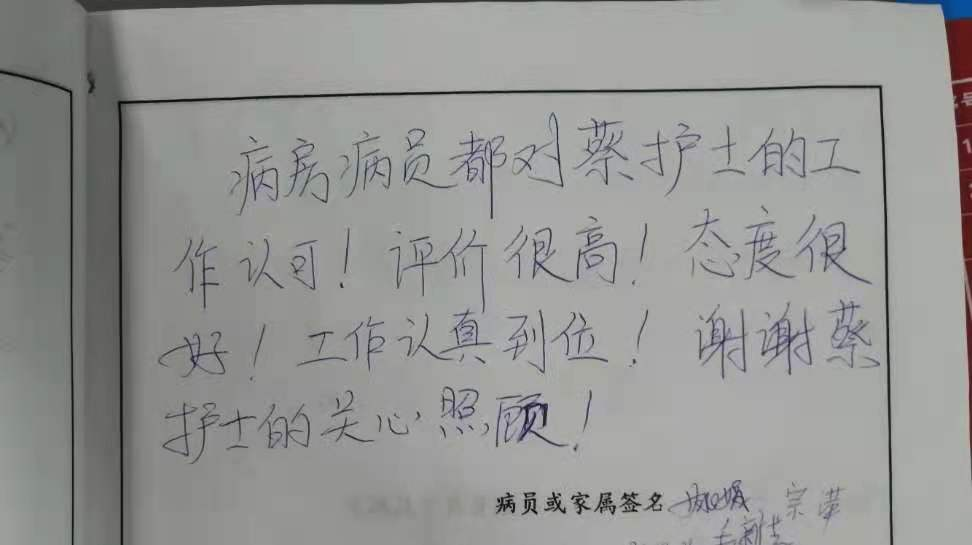 病房病员都对蔡护士的工
作认可！评价很高！态度很
好！工作认真到位！谢谢蔡
护士的关心照顾！
病员或家属签名